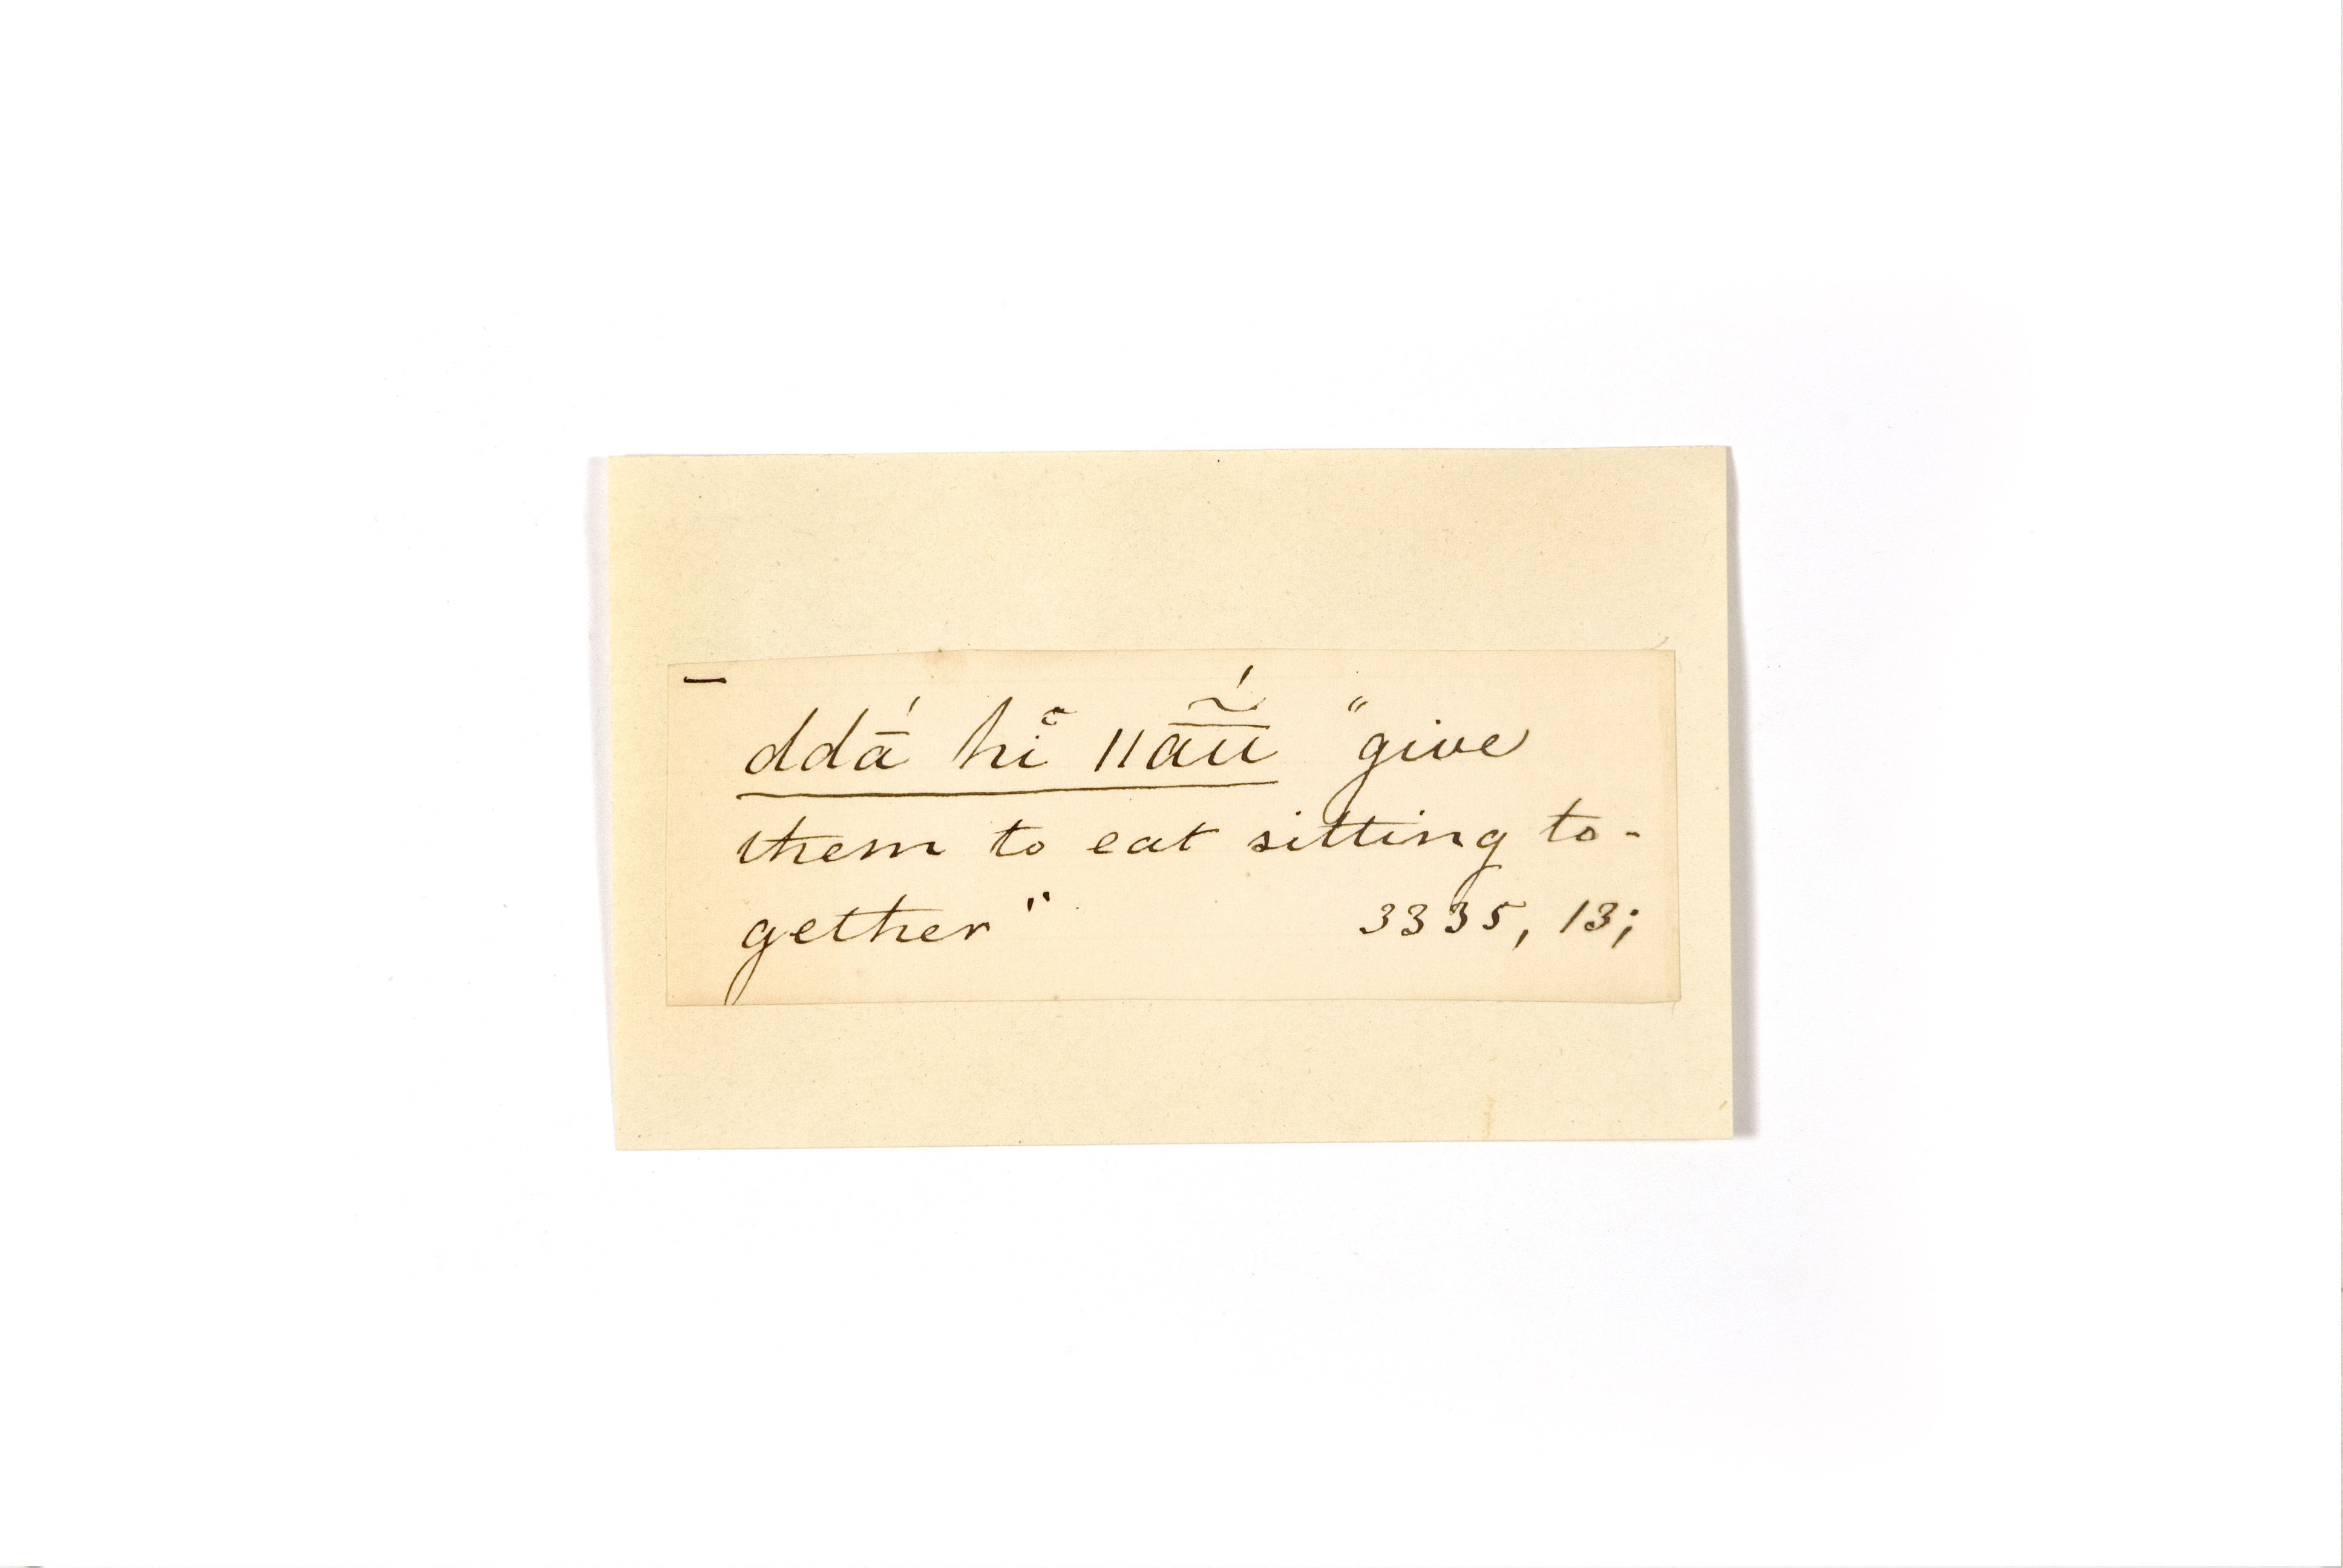 —
ddā́ hĩ ǁa͠ú "give
them to eat sitting to-
gether" 3335, 13;